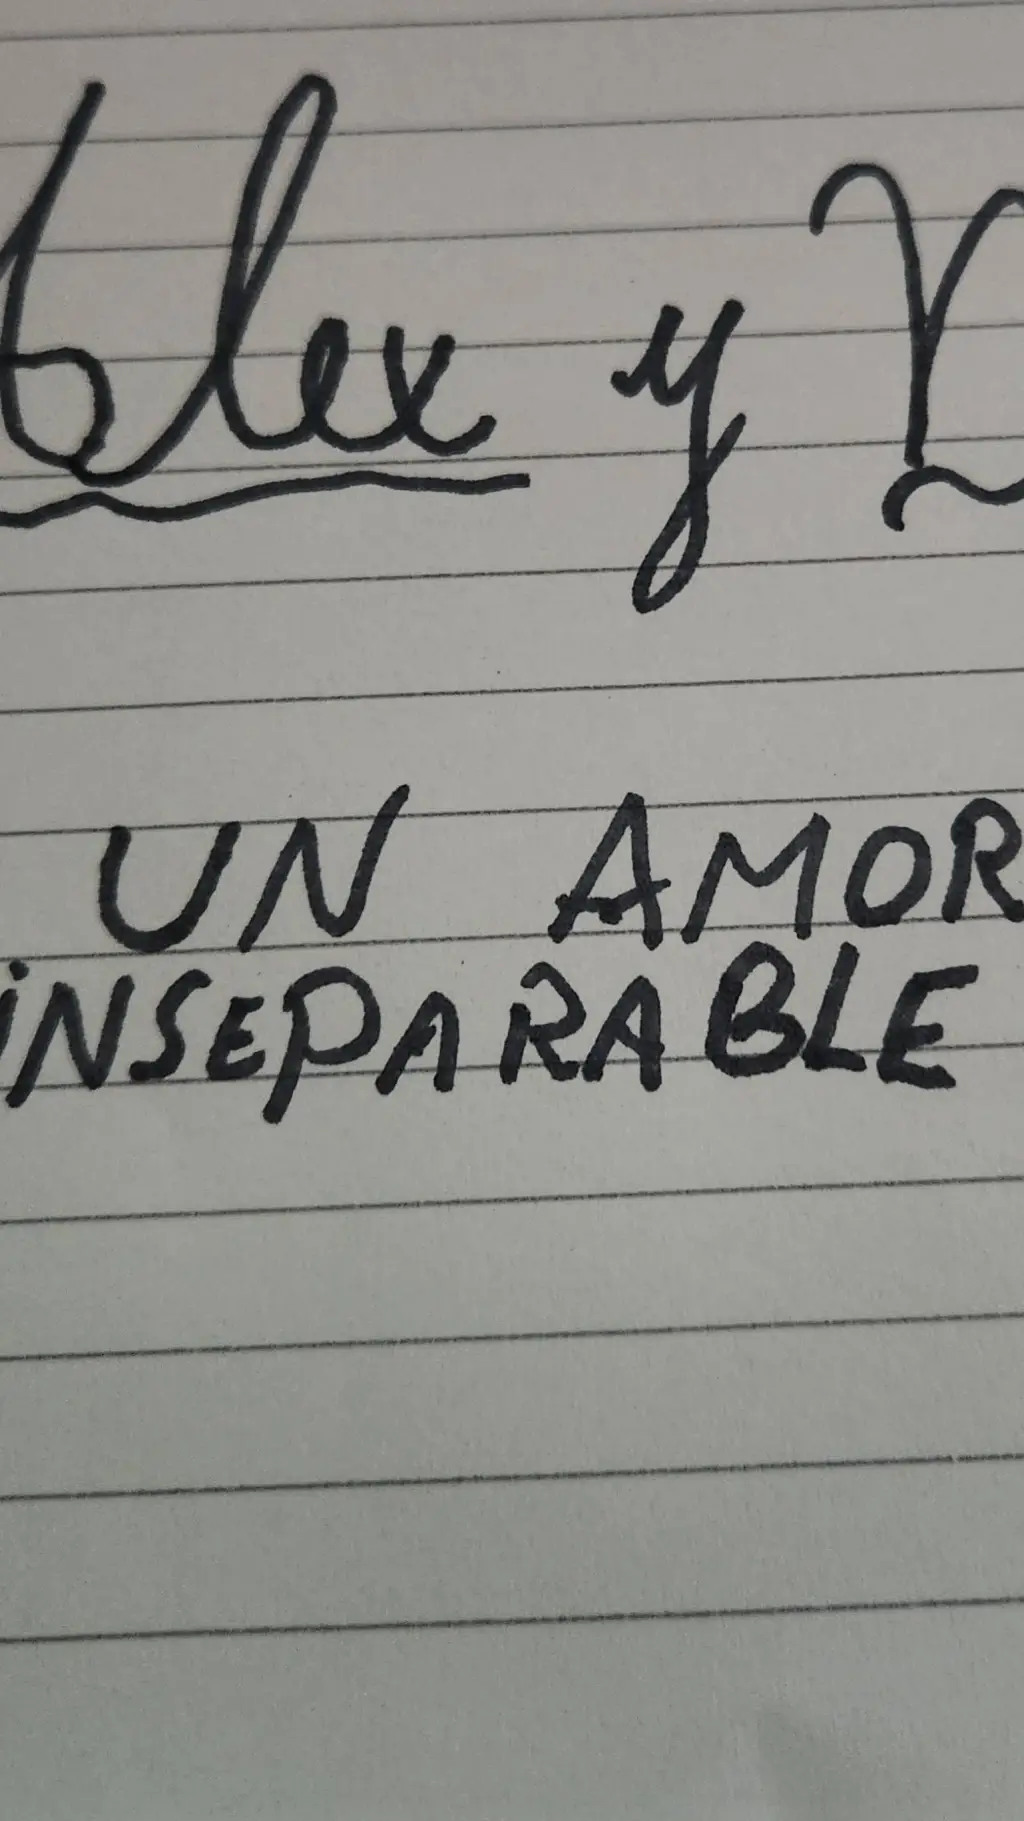 Alex y
UN AMOR
iNSEPARABLE